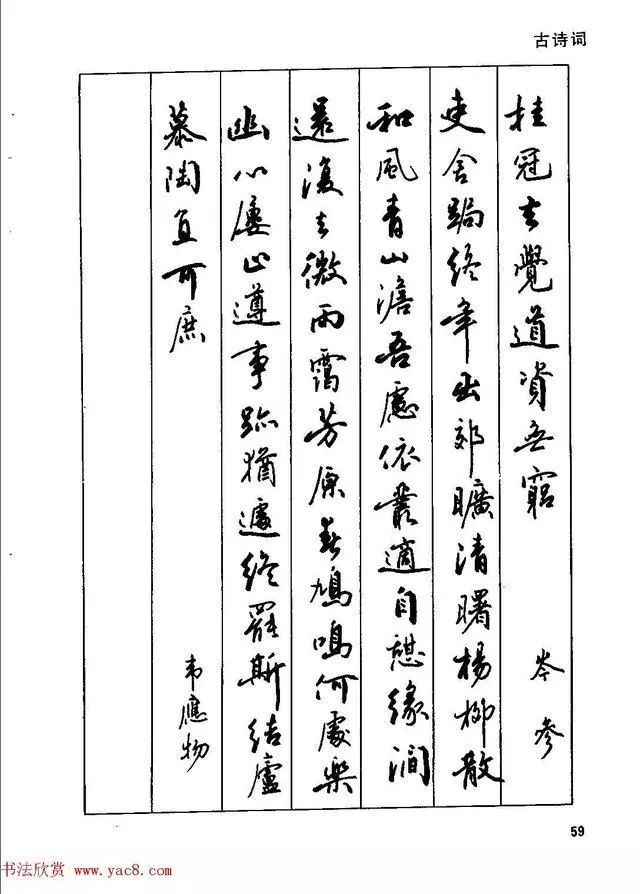 古诗词
挂冠去覺道資無窮
岑參
吏舍跼終年出郊曠清曙楊柳散
和風青山澹吾慮依叢適自憩緣澗
還復去微雨靄芳原春鳩鳴何處樂
幽心屢止遵事跡猶遽終罷斯結廬
慕陶直可庶
韦應物
59
书法欣赏 www.yac8.com